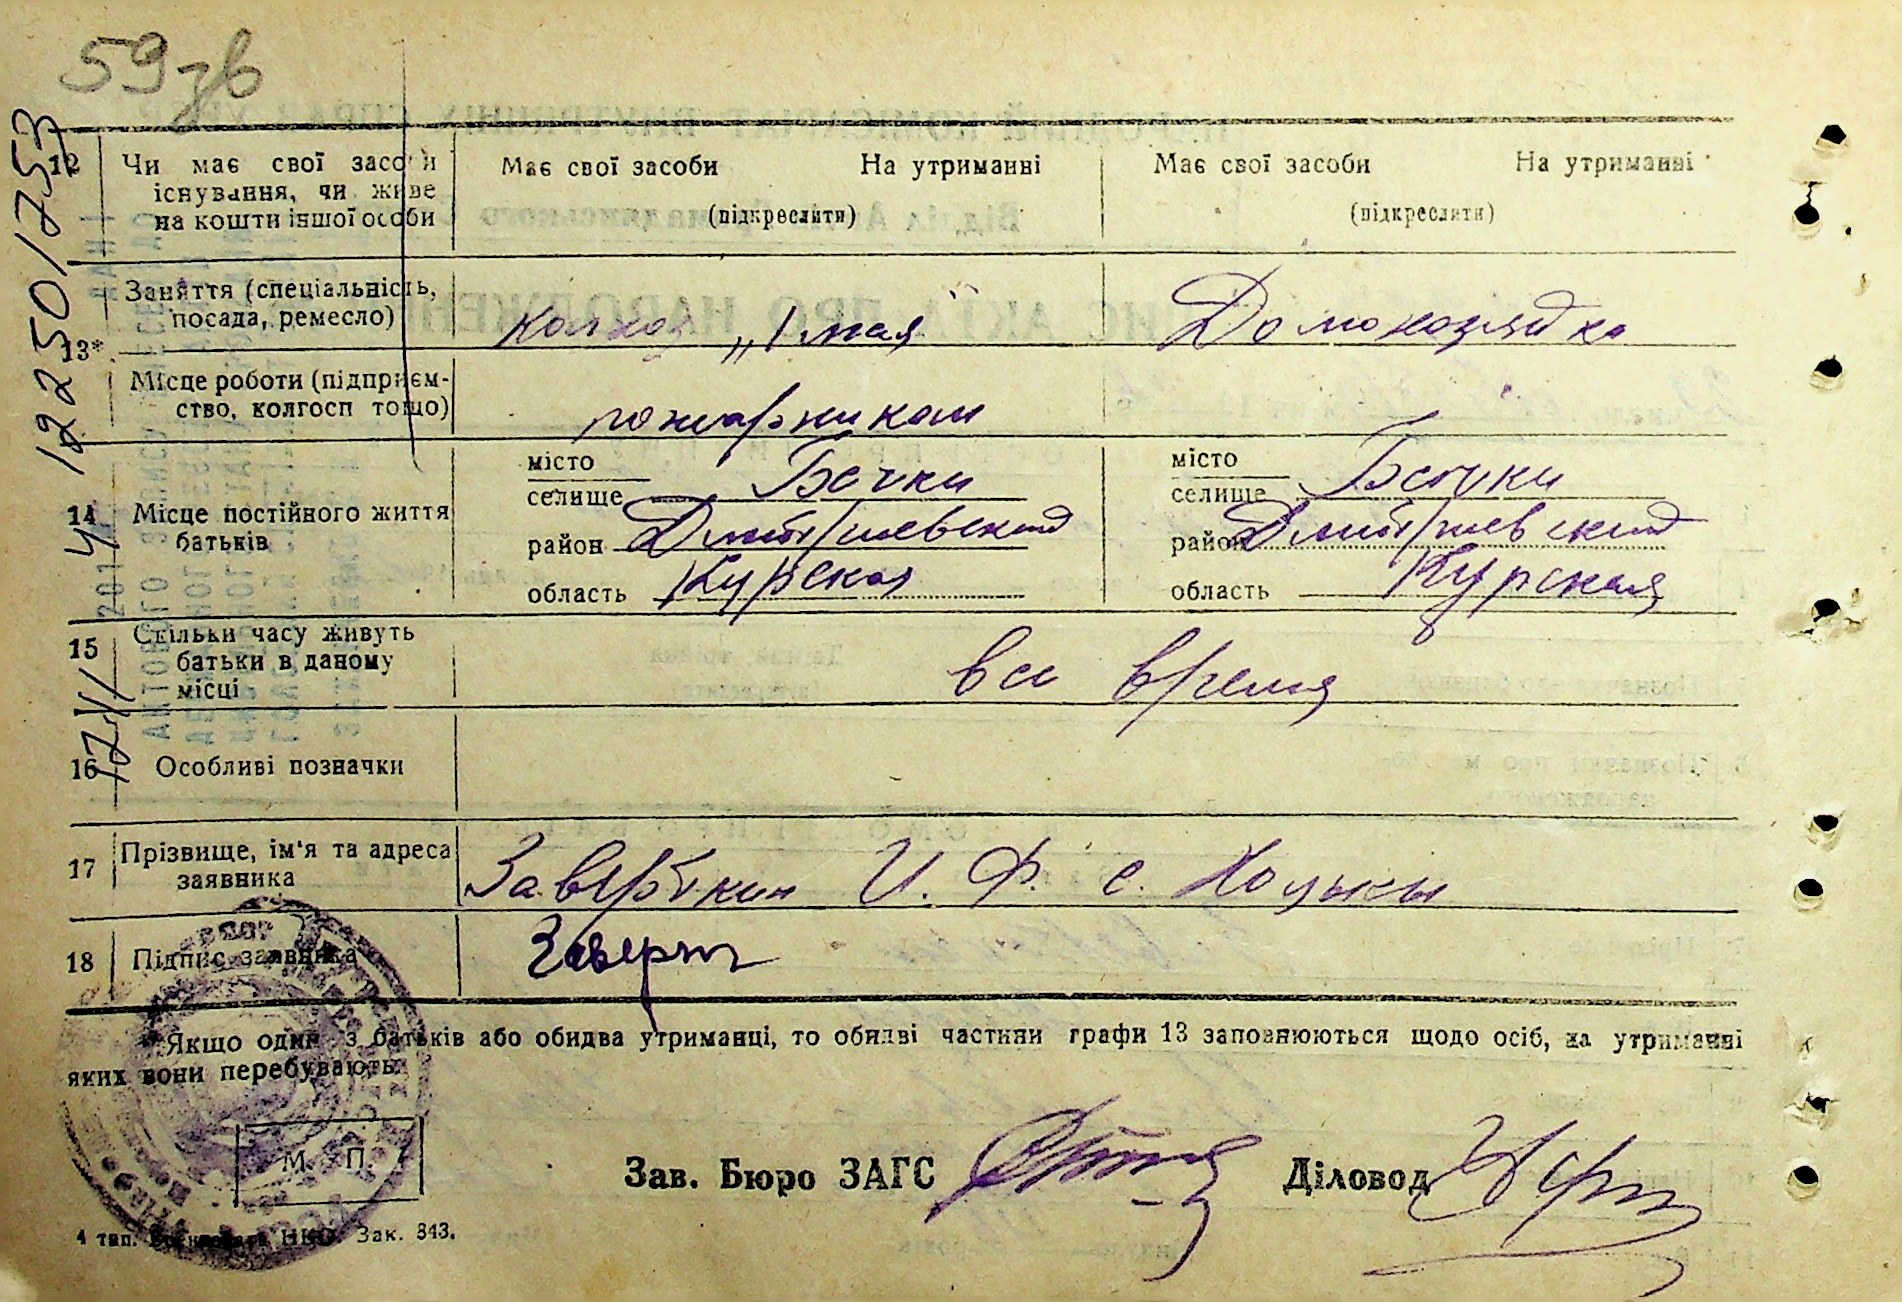 59 зв
12250/753
12 Чи має свої засоби Має свої засоби На утриманні Має свої засоби На утриманні
існування, чи живе
на кошти іншої особи (підкреслити) (підкреслити)
Заняття (спеціальність,
посада, ремесло) колхоз „1 мая" Домохозяйка
13*
Місце роботи (підприєм-
ство, колгосп тощо) пожарником
місто місто
селище Бочки селище Бочки
14 Місце постійного життя
батьків район Дмитриевский район Дмитриевский
область Курская область Курская
15 Скільки часу живуть
батьки в даному все время
місці
16 Особливі позначки
17 Прізвище, ім'я та адреса
заявника Заверткин И. Ф. с.
18 Підпис заявника Заверт
* Якщо один з батьків або обидва утриманці, то обидві частини графи 13 заповнюються щодо осіб, на утриманні
яких вони перебувають.
М. П.
Зав. Бюро ЗАГС Діловод
4 тип. Зак. 343.